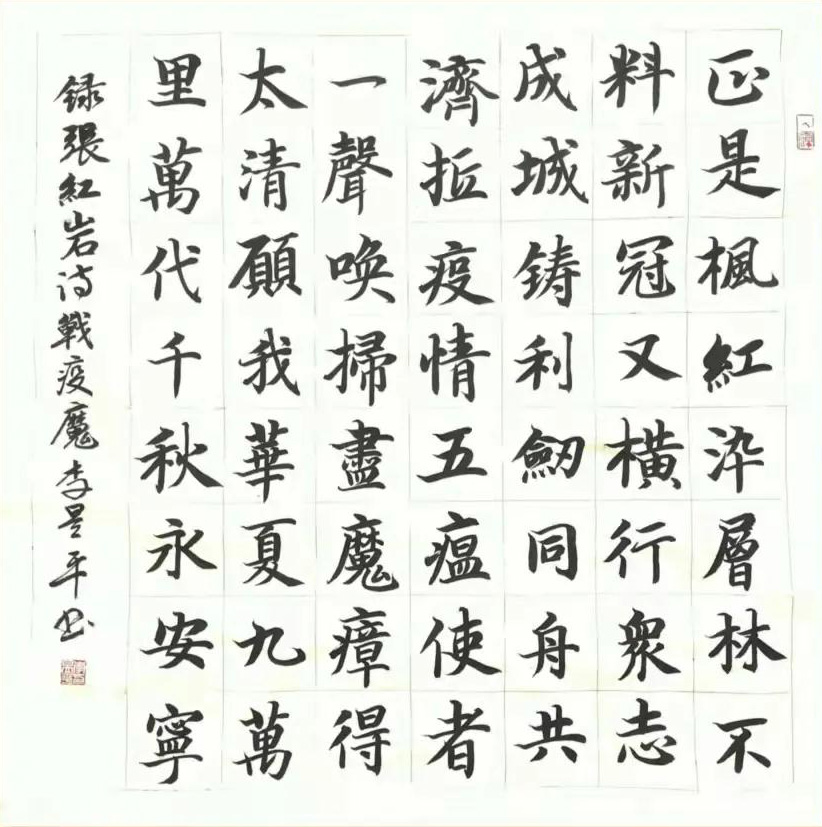 正是楓紅染層林不
料新冠又橫行衆志
成城铸利劒同舟共
濟抗疫情五瘟使者
一聲唤掃盡魔瘴得
太清願我華夏九萬
里萬代千秋永安寧
録張紅岩诗戰疫魔李是平书